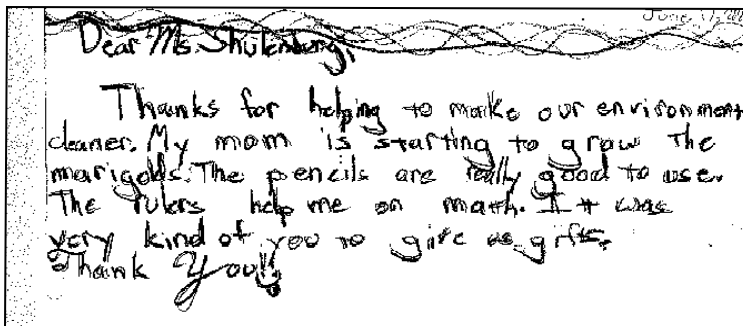 June 17,
Dear Ms. Shulenburg,
Thanks for helping to make our environment
cleaner. My mom is starting to grow the
marigolds. The pencils are really good to use.
The rulers help me on math. It was
very kind of you to give us gifts.
Thank You!!